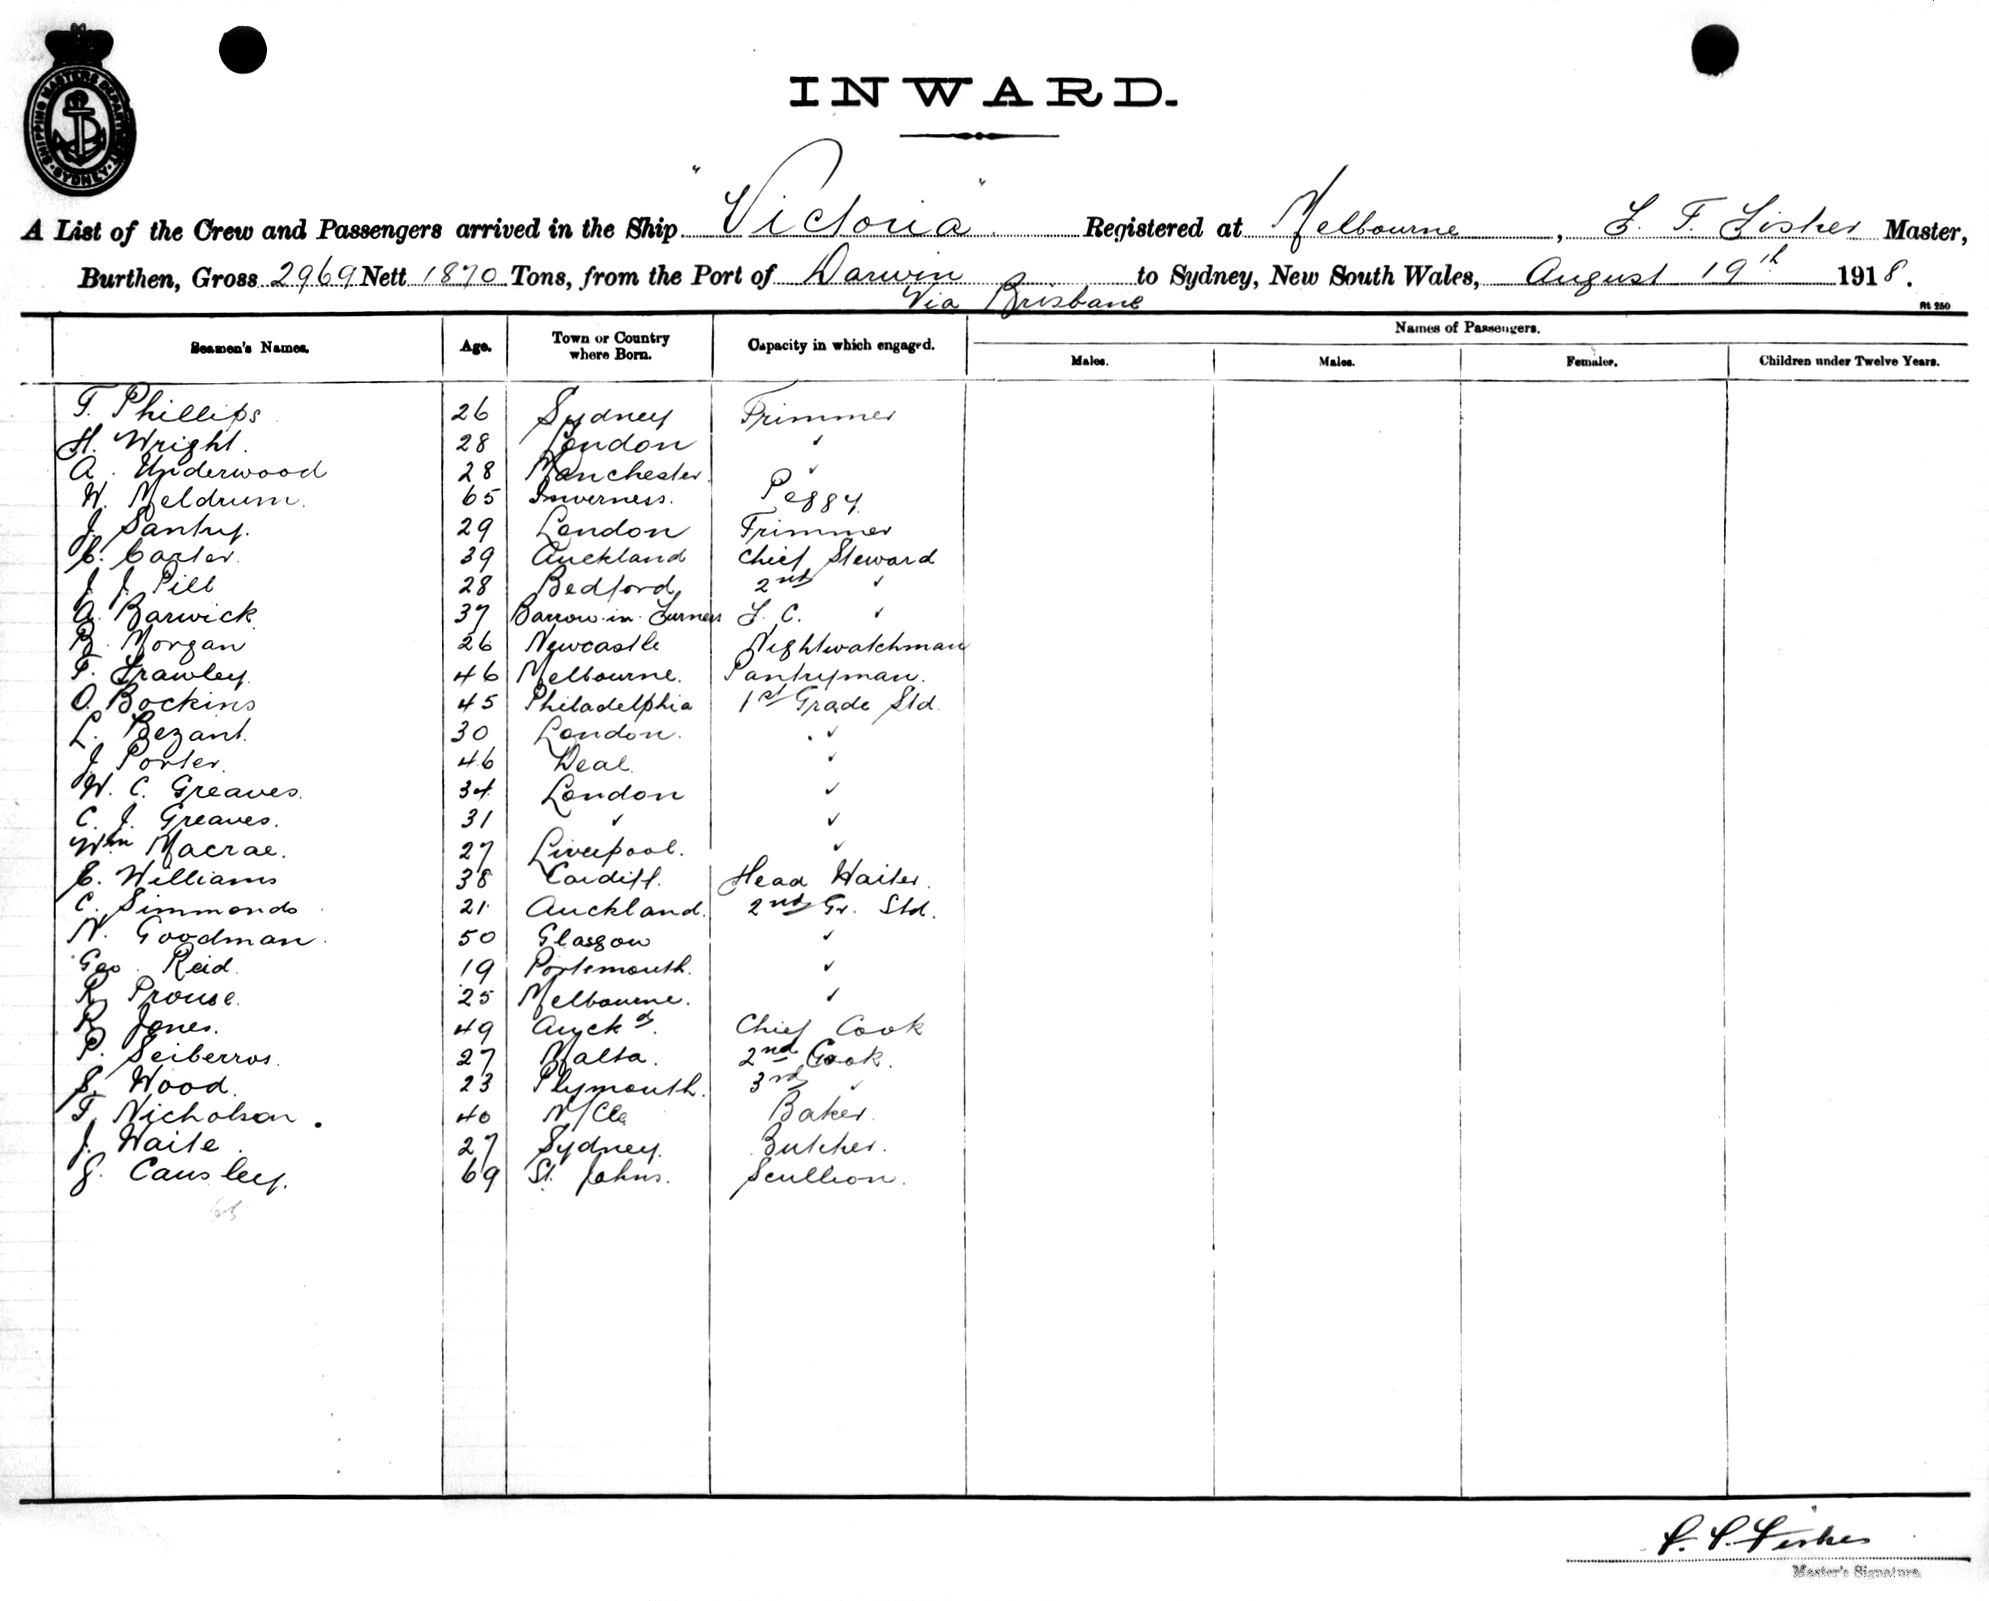 SHIPPING MASTERS DEPARTMENT
SYDNEY
INWARD.
A List of the Crew and Passengers arrived in the Ship "Victoria" Registered at Melbourne, F. F. Fisher Master,
Burthen, Gross 2969 Nett 1870 Tons, from the Port of Darwin to Sydney, New South Wales, August 19th 1918.
Via Brisbane
Rt 250
Seamen's Names. Age. Town or Country where Born. Capacity in which engaged. Names of Passengers.
Males. Males. Females. Children under Twelve Years.
T. Phillips 26 Sydney Trimmer
H. Wright. 28 London ✓
A. Underwood 28 Manchester. ✓
W. Meldrum. 65 Inverness. Peggy
J. Santry. 29 London Trimmer
C. Carter. 39 Auckland Chief Steward
J. J. Pill 28 Bedford 2nd ✓
A. Barwick 37 Barrow-in-Furness F. C. ✓
R. Morgan 26 Newcastle Nightwatchman
F. Frawley. 46 Melbourne. Pantryman.
O. Bockins 45 Philadelphia 1st Grade Std.
L. Bezant. 30 London. ✓
J. Porter. 46 Deal. ✓
W. C. Greaves. 34 London ✓
C. J. Greaves. 31 ✓ ✓
Wm Macrae. 27 Liverpool. ✓
E. Williams 38 Cardiff. Head Waiter.
C. Simmonds 21 Auckland. 2nd Gr. Std.
N. Goodman. 50 Glasgow ✓
Geo. Reid. 19 Portsmouth. ✓
R. Prouse. 25 Melbourne. ✓
R. Jones. 49 Auckd. Chief Cook
P. Seiberros. 27 Malta. 2nd Cook.
S. Wood. 23 Plymouth. 3rd ✓
T. Nicholson. 40 N/Cle Baker.
J. Waite. 27 Sydney. Butcher.
G. Causley. 69 St. Johns. Scullion.
F. F. Fisher
Master's Signature.